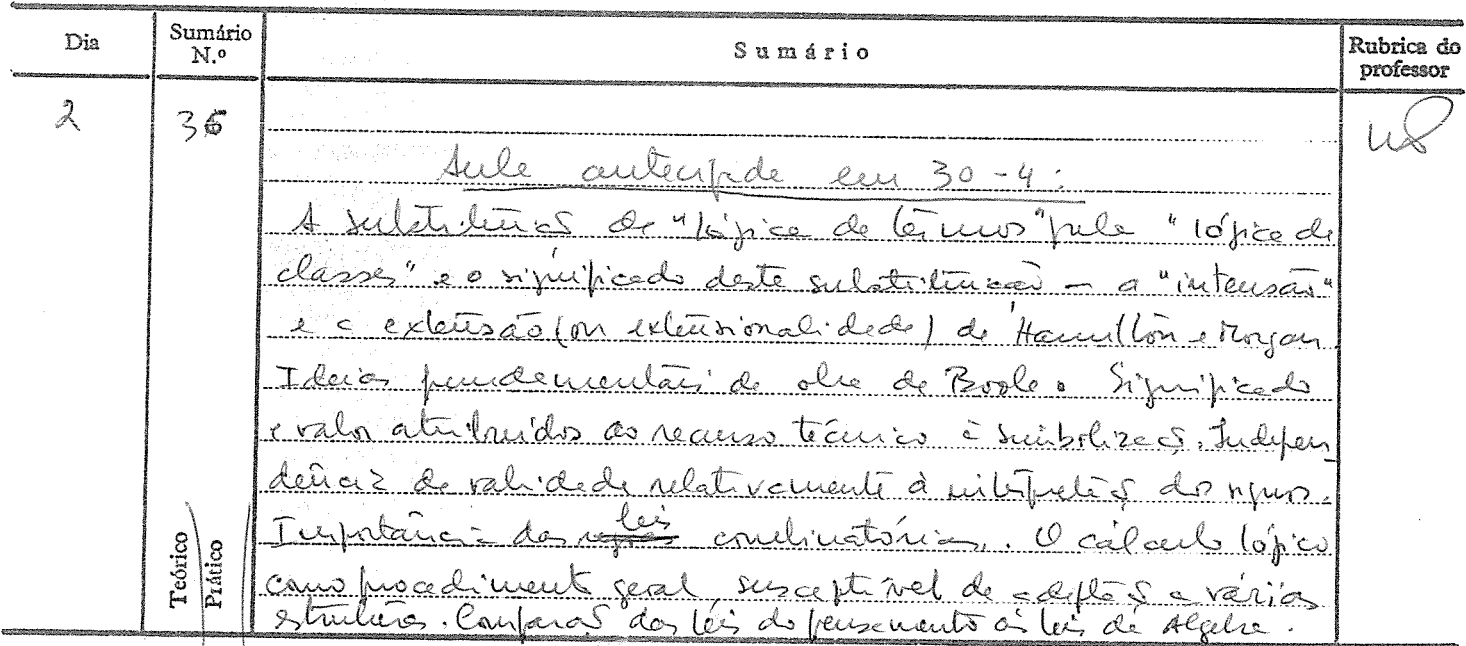 Dia
Sumário N.º
Sumário
Rubrica do professor
2
36
Aula antecipada em 30-4:
A substituição da "lógica de têrmos" pela "lógica de
classes" e o significado desta substituição – a "intensão"
e a extensão (ou extensionalidade) de Hamilton e Morgan
Ideias fundamentais da obra de Boole. Significado
e valor atribuidos ao recurso técnico à simbolizaç. Indepen
dência da validade relativamente à interpretaç. dos signos.
Importância das leis combinatórias. O cálculo lógico
como procedimento geral, susceptível de adaptaç. a várias
estruturas. Comparaç. das leis do pensamento às leis da Algebra.
Teórico
Prático